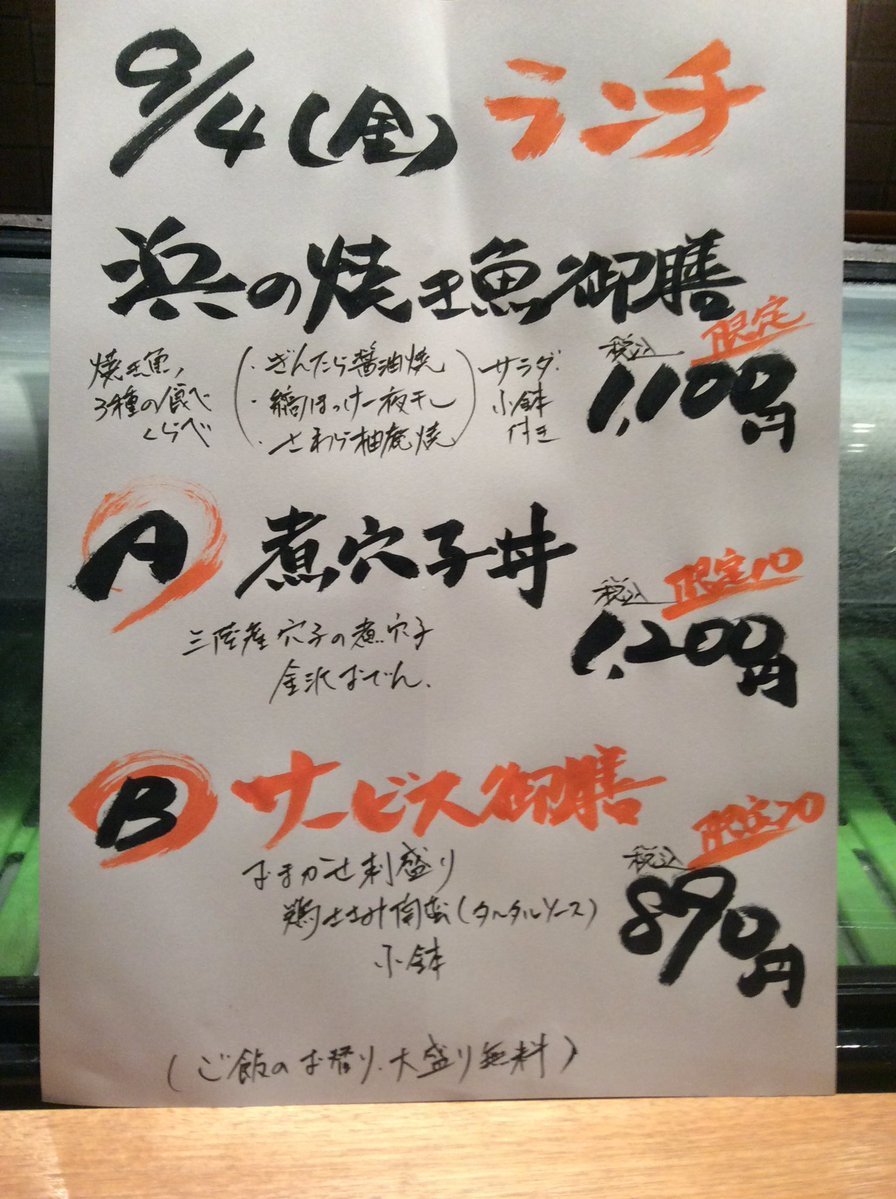 9/4(金) ランチ
浜の焼き魚御膳
限定
税込
1,100円
焼き魚、
3種の食べ
くらべ
・ぎんたら醤油焼
・縞ほっけ一夜干し
・さわら柚庵焼
サラダ・
小鉢
付き
A 煮穴子丼
限定10
税込
1,200円
三陸産穴子の煮穴子
金沢おでん.
B サービス御膳
限定20
税込
890円
おまかせ刺盛り
鶏ささみ(タルタルソース)
小鉢
(ご飯のお替り、大盛り無料)